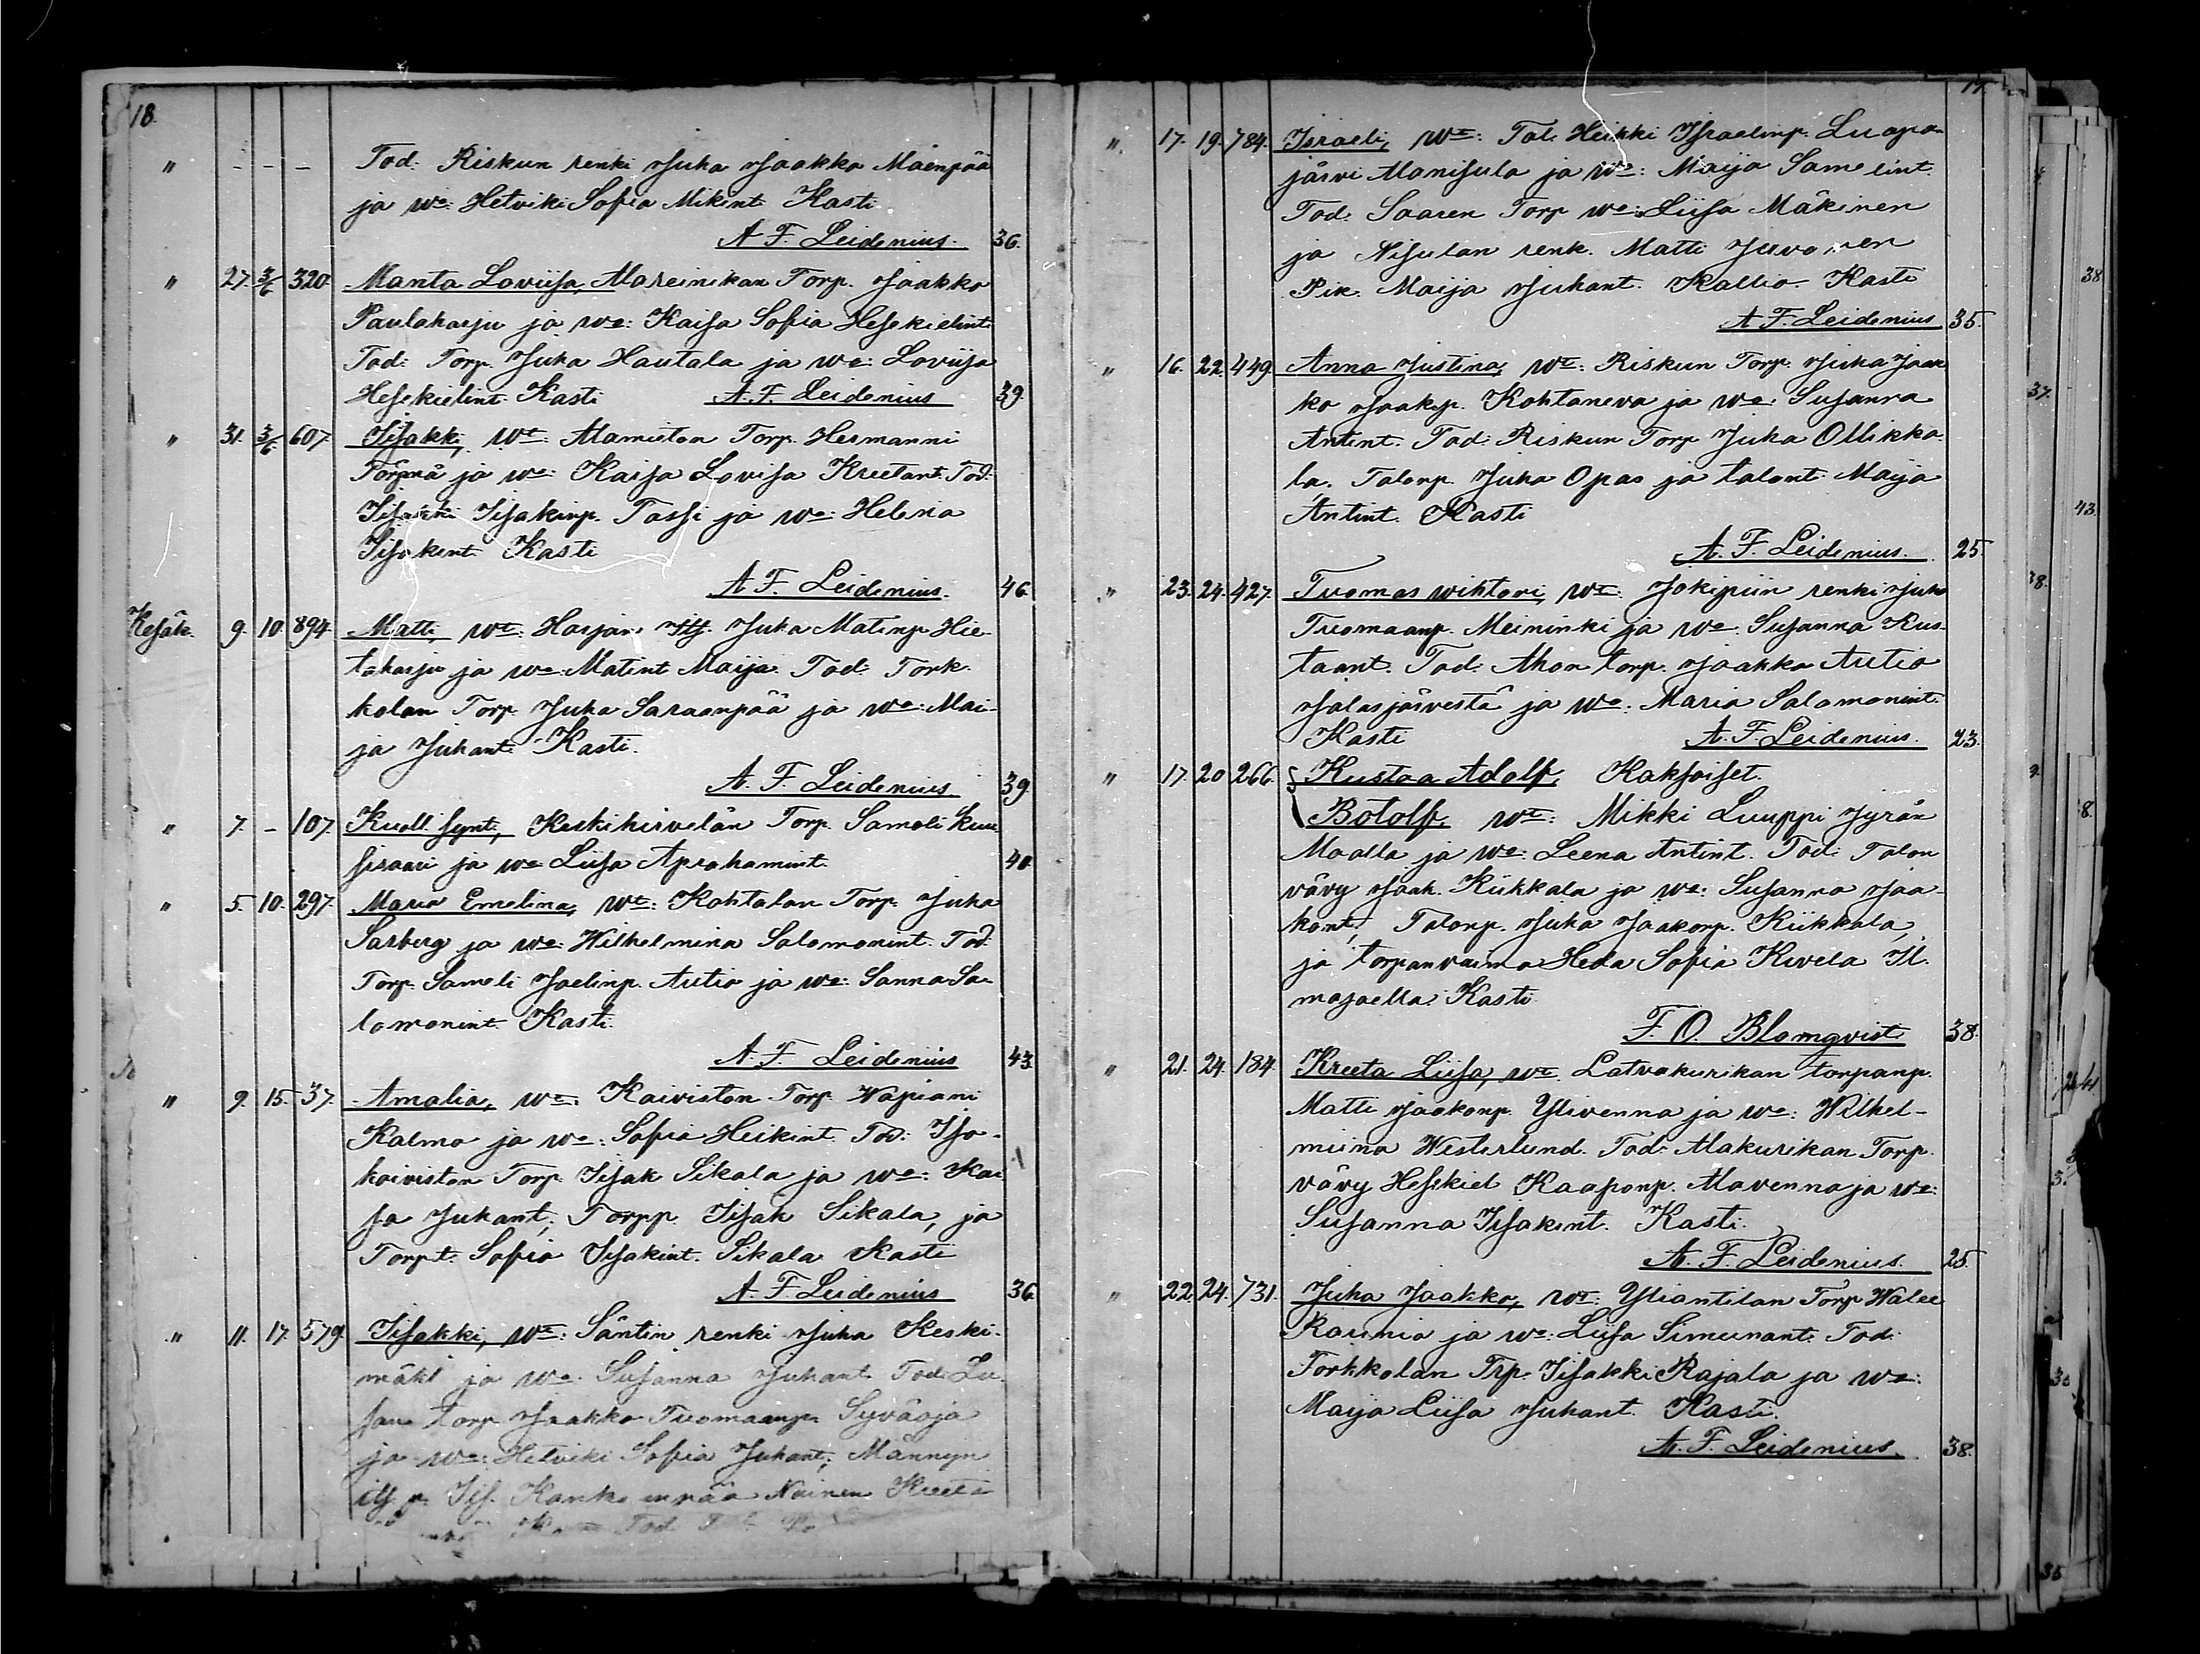 18.
" - - - Tod: Riskun renki Juha Jaakko Mäenpää
ja wa: Hetviki Sofia Mikint Kasti
A F. Leidenius. 36.
" 27. 3/6 320. Manta Loviisa, Mareinikan Torp. Jaakko
Paulaharju ja wa: Kaisa Sofia Hesekielint
Tod: Torp. Juha Hautala ja wa: Loviisa
Hesekielint Kasti A. F. Leidenius 39.
" 31. 3/6 607. Iisakki, wt: Mamiston Torp. Hermanni
Törmä ja wa: Kaisa Lovisa Kreetant. Tod:
Iisakki Iisakinp. Tassi ja wa: Helena
Iisakint Kasti
A F. Leidenius. 46.
Kesäk. 9. 10. 894. Matti, wt: Harjan Itf. Juha Matinp. Hie-
taharju ja wa: Matint Maija. Tod: Tork-
kolan Torp. Juha Saraanpää ja wa: Mai-
ja Juhant: Kasti.
A. F. Leidenius. 39.
" 7. - 107. Kuoll. synt:, Keskihirvelän Torp. Sameli Kuu
sisaari ja wa Liisa Aprahamint. 40.
" 5. 10. 297. Maria Emelina, wt: Kohtalan Torp. Juha
Sarberg ja wa: Wilhelmina Salomonint. Tod:
Torp. Sameli Joelinp. Autio ja wa: Sanna Sa-
lomonint. Kasti.
A. F. Leidenius 43.
" 9. 15. 37. Amalia, wt: Koiviston Torp Wapiani
Kalmo ja wa: Sofia Heikint. Tod: Iso-
koiviston Torp. Iisak Sikala ja wa: Kai
sa Juhant; Torpp. Iisak Sikala, ja
Torpt. Sofia Iisakint. Sikala Kasti
A. F. Leidenius 36.
" 11. 17. 579. Iisakki, wt: Säntin renki Juha Keski-
mäki ja wa: Susanna Juhant Tod: Lu
san torp. Jaakko Tuomaanp. Syväoja
ja wa: Hetviki Sofia Juhant; Männyn
itf p. Iis. Kankaanpää Nainen Kreeta
Tod
17.
" 17. 19. 784. Israeli, wt: Tal. Heikki Israelinp. Luopa-
järvi Manisula ja wa: Maija Samelint.
Tod: Saaren Torp wa: Liisa Mäkinen
ja Nisulan renk. Matti Juvonen
Pik. Maija Juhant. Kallio- Kasti
A F. Leidenius 35.
" 16. 22. 449. Anna Justina, wt: Riskun Torp. Juha Jaak
ko Jaakp. Kohtaneva ja wa: Susanna
Antint. Tod: Riskun Torp Juha Ollikka
la. Talonp. Juha Opas ja talont: Maija
Antint. Kasti
A. F. Leidenius. 25.
" 23. 24. 427. Tuomas wihtori, wt: Jokipiin renki Juho
Tuomaanp. Meininki ja wa Susanna Kus-
taant. Tod: Ahon torp. Jaakko Autio
Jalasjärvestä ja wa: Maria Salomonint.
Kasti A. F. Leidenius. 23.
" 17. 20. 266. Kustaa Adolf, Kaksoiset.
Botolf, wt: Mikki Luuppi Jyrän
Maalla ja wa: Leena Antint. Tod: Talon
vävy Jaak. Kiikkala ja wa: Susanna Jaa-
kont, Talonp. Juha Jaakonp. Kiikkala,
ja torpanvaimo Heda Sofia Kivela Il-
majoella Kasti
F. O. Blomqvist 38.
" 21. 24. 184. Kreeta Liisa, wt. Latvakurikan torpanp.
Matti Jaakonp. Ylivenna ja wa: Wilhel-
miina Westerlund. Tod: Alakurikan Torp.
vävy Hesekiel Kaaponp. Alavenna ja wa:
Susanna Iisakint. Kasti.
A. F. Leidenius. 25.
" 22. 24. 731. Juha Jaakko, wt: Yliantilan Torp Walee
Raunio ja wa: Liisa Simunant: Tod:
Torkkolan Trp. Iisakki Rajala ja wa:
Maija Liisa Juhant. Kasti.
A. F. Leidenius. 38.